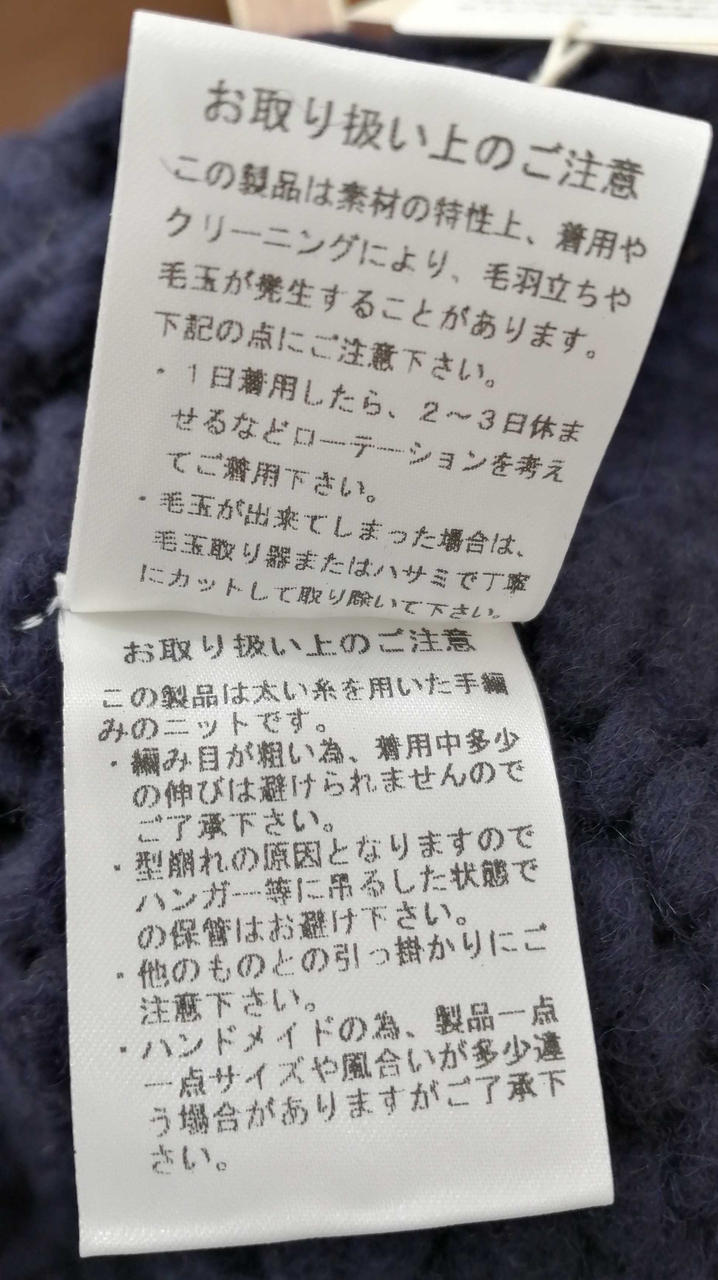 お取り扱い上のご注意
この製品は素材の特性上、着用や
クリーニングにより、毛羽立ちや
毛玉が発生することがあります。
下記の点にご注意下さい。
・1日着用したら、2〜3日休ま
せるなどローテーションを考え
てご着用下さい。
・毛玉が出来てしまった場合は、
毛玉取り器またはハサミで丁寧
にカットして取り除いて下さい。
お取り扱い上のご注意
この製品は太い糸を用いた手編
みのニットです。
・編み目が粗い為、着用中多少
の伸びは避けられませんので
ご了承下さい。
・型崩れの原因となりますので
ハンガー等に吊るした状態で
の保管はお避け下さい。
・他のものとの引っ掛かりにご
注意下さい。
・ハンドメイドの為、製品一点
一点サイズや風合いが多少違
う場合がありますがご了承下
さい。